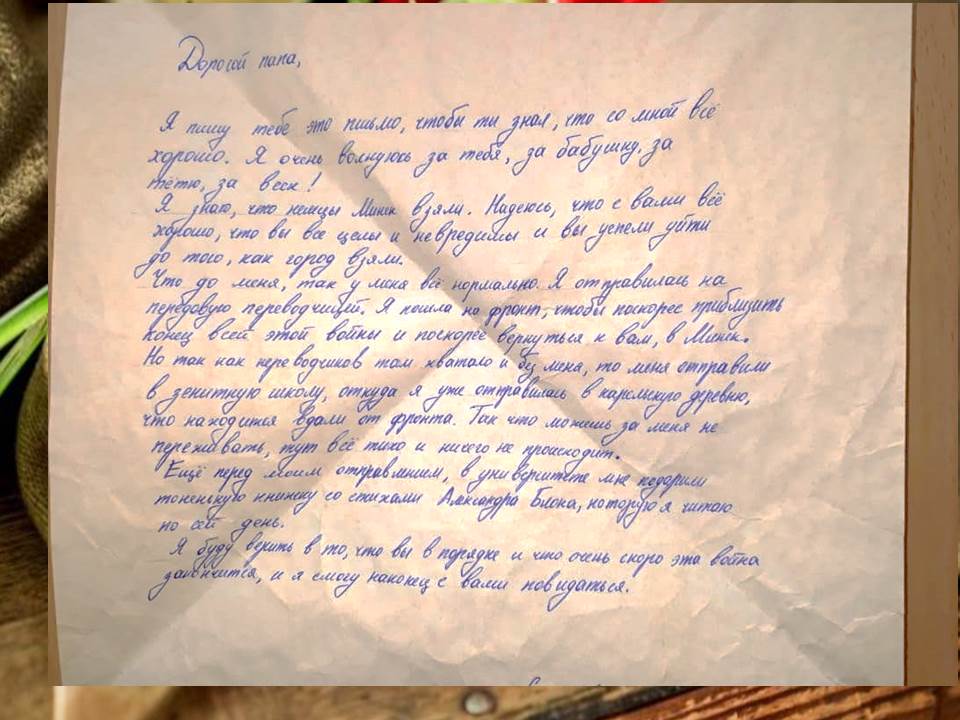 Дорогой папа,
Я пишу тебе это письмо, чтобы ты знал, что со мной всё
хорошо. Я очень волнуюсь за тебя, за бабушку, за
тётю, за всех!
Я знаю, что немцы Минск взяли. Надеюсь, что с вами всё
хорошо, что вы все целы и невредимы и вы успели уйти
до того, как город взяли.
Что до меня, так у меня всё нормально. Я отправилась на
передовую переводчицей. Я пошла на фронт, чтобы поскорее приблизить
конец всей этой войны и поскорее вернуться к вам, в Минск.
Но так как переводчиков там хватало и без меня, то меня отправили
в зенитную школу, откуда я уже отправилась в карельскую деревню,
что находится вдали от фронта. Так что можешь за меня не
переживать, тут всё тихо и ничего не происходит.
Ещё перед моим отправлением, в университете мне подарили
тоненькую книжку со стихами Александра Блока, которую я читаю
по сей день.
Я буду верить в то, что вы в порядке и что очень скоро эта война
закончится, и я смогу наконец с вами повидаться.